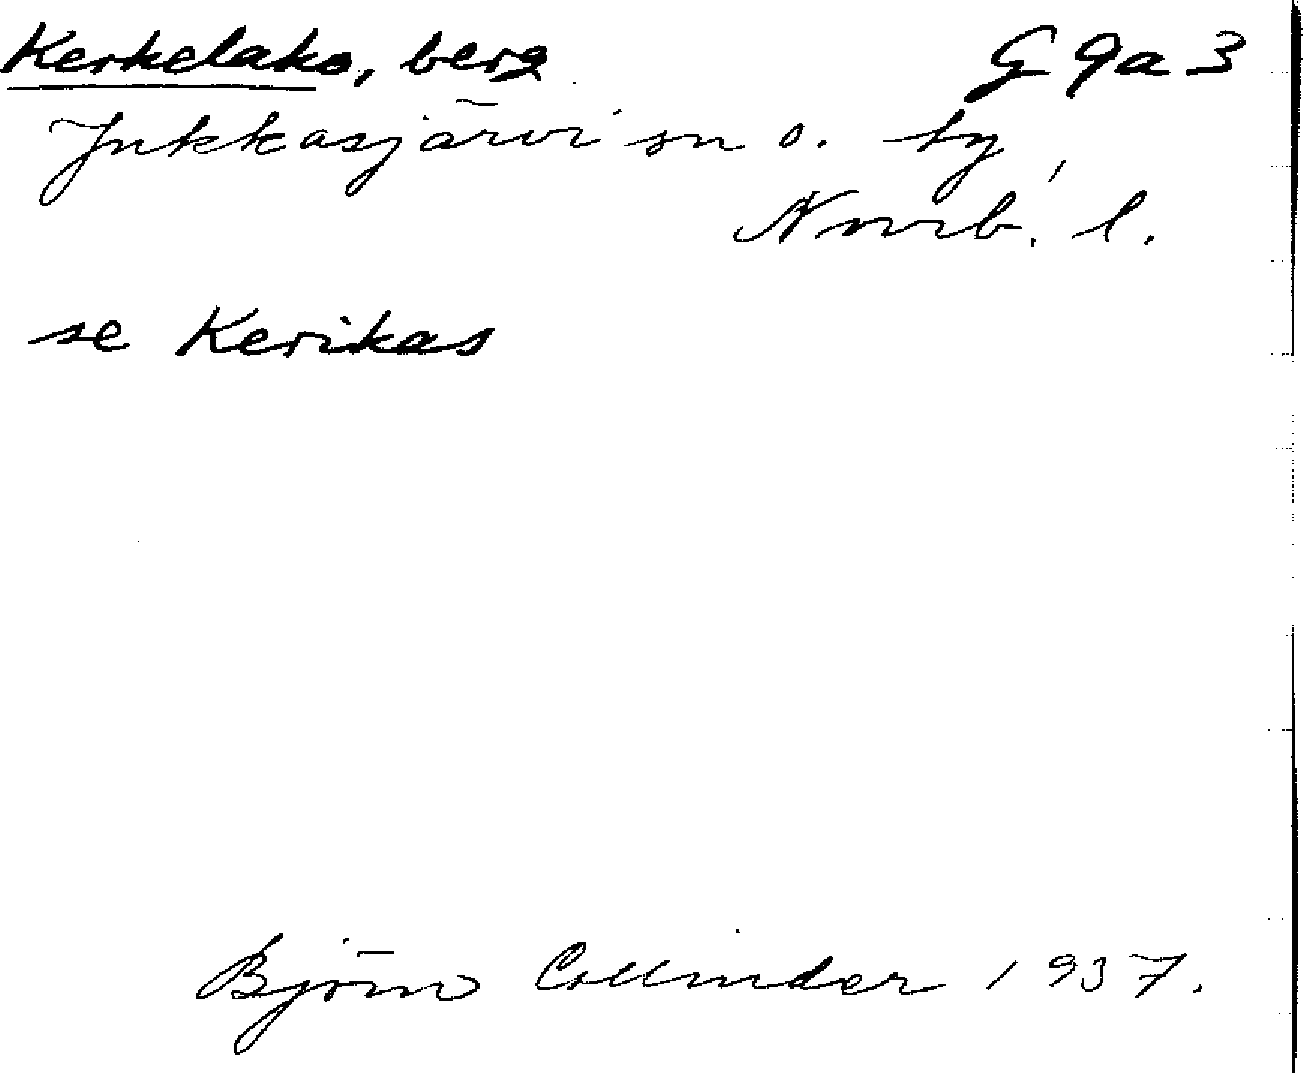 Kerkelako, berg G 9a 3
Jukkasjärvi sn o. by,
Norrb. l.
se Kerikas
Björn Collinder 1937.